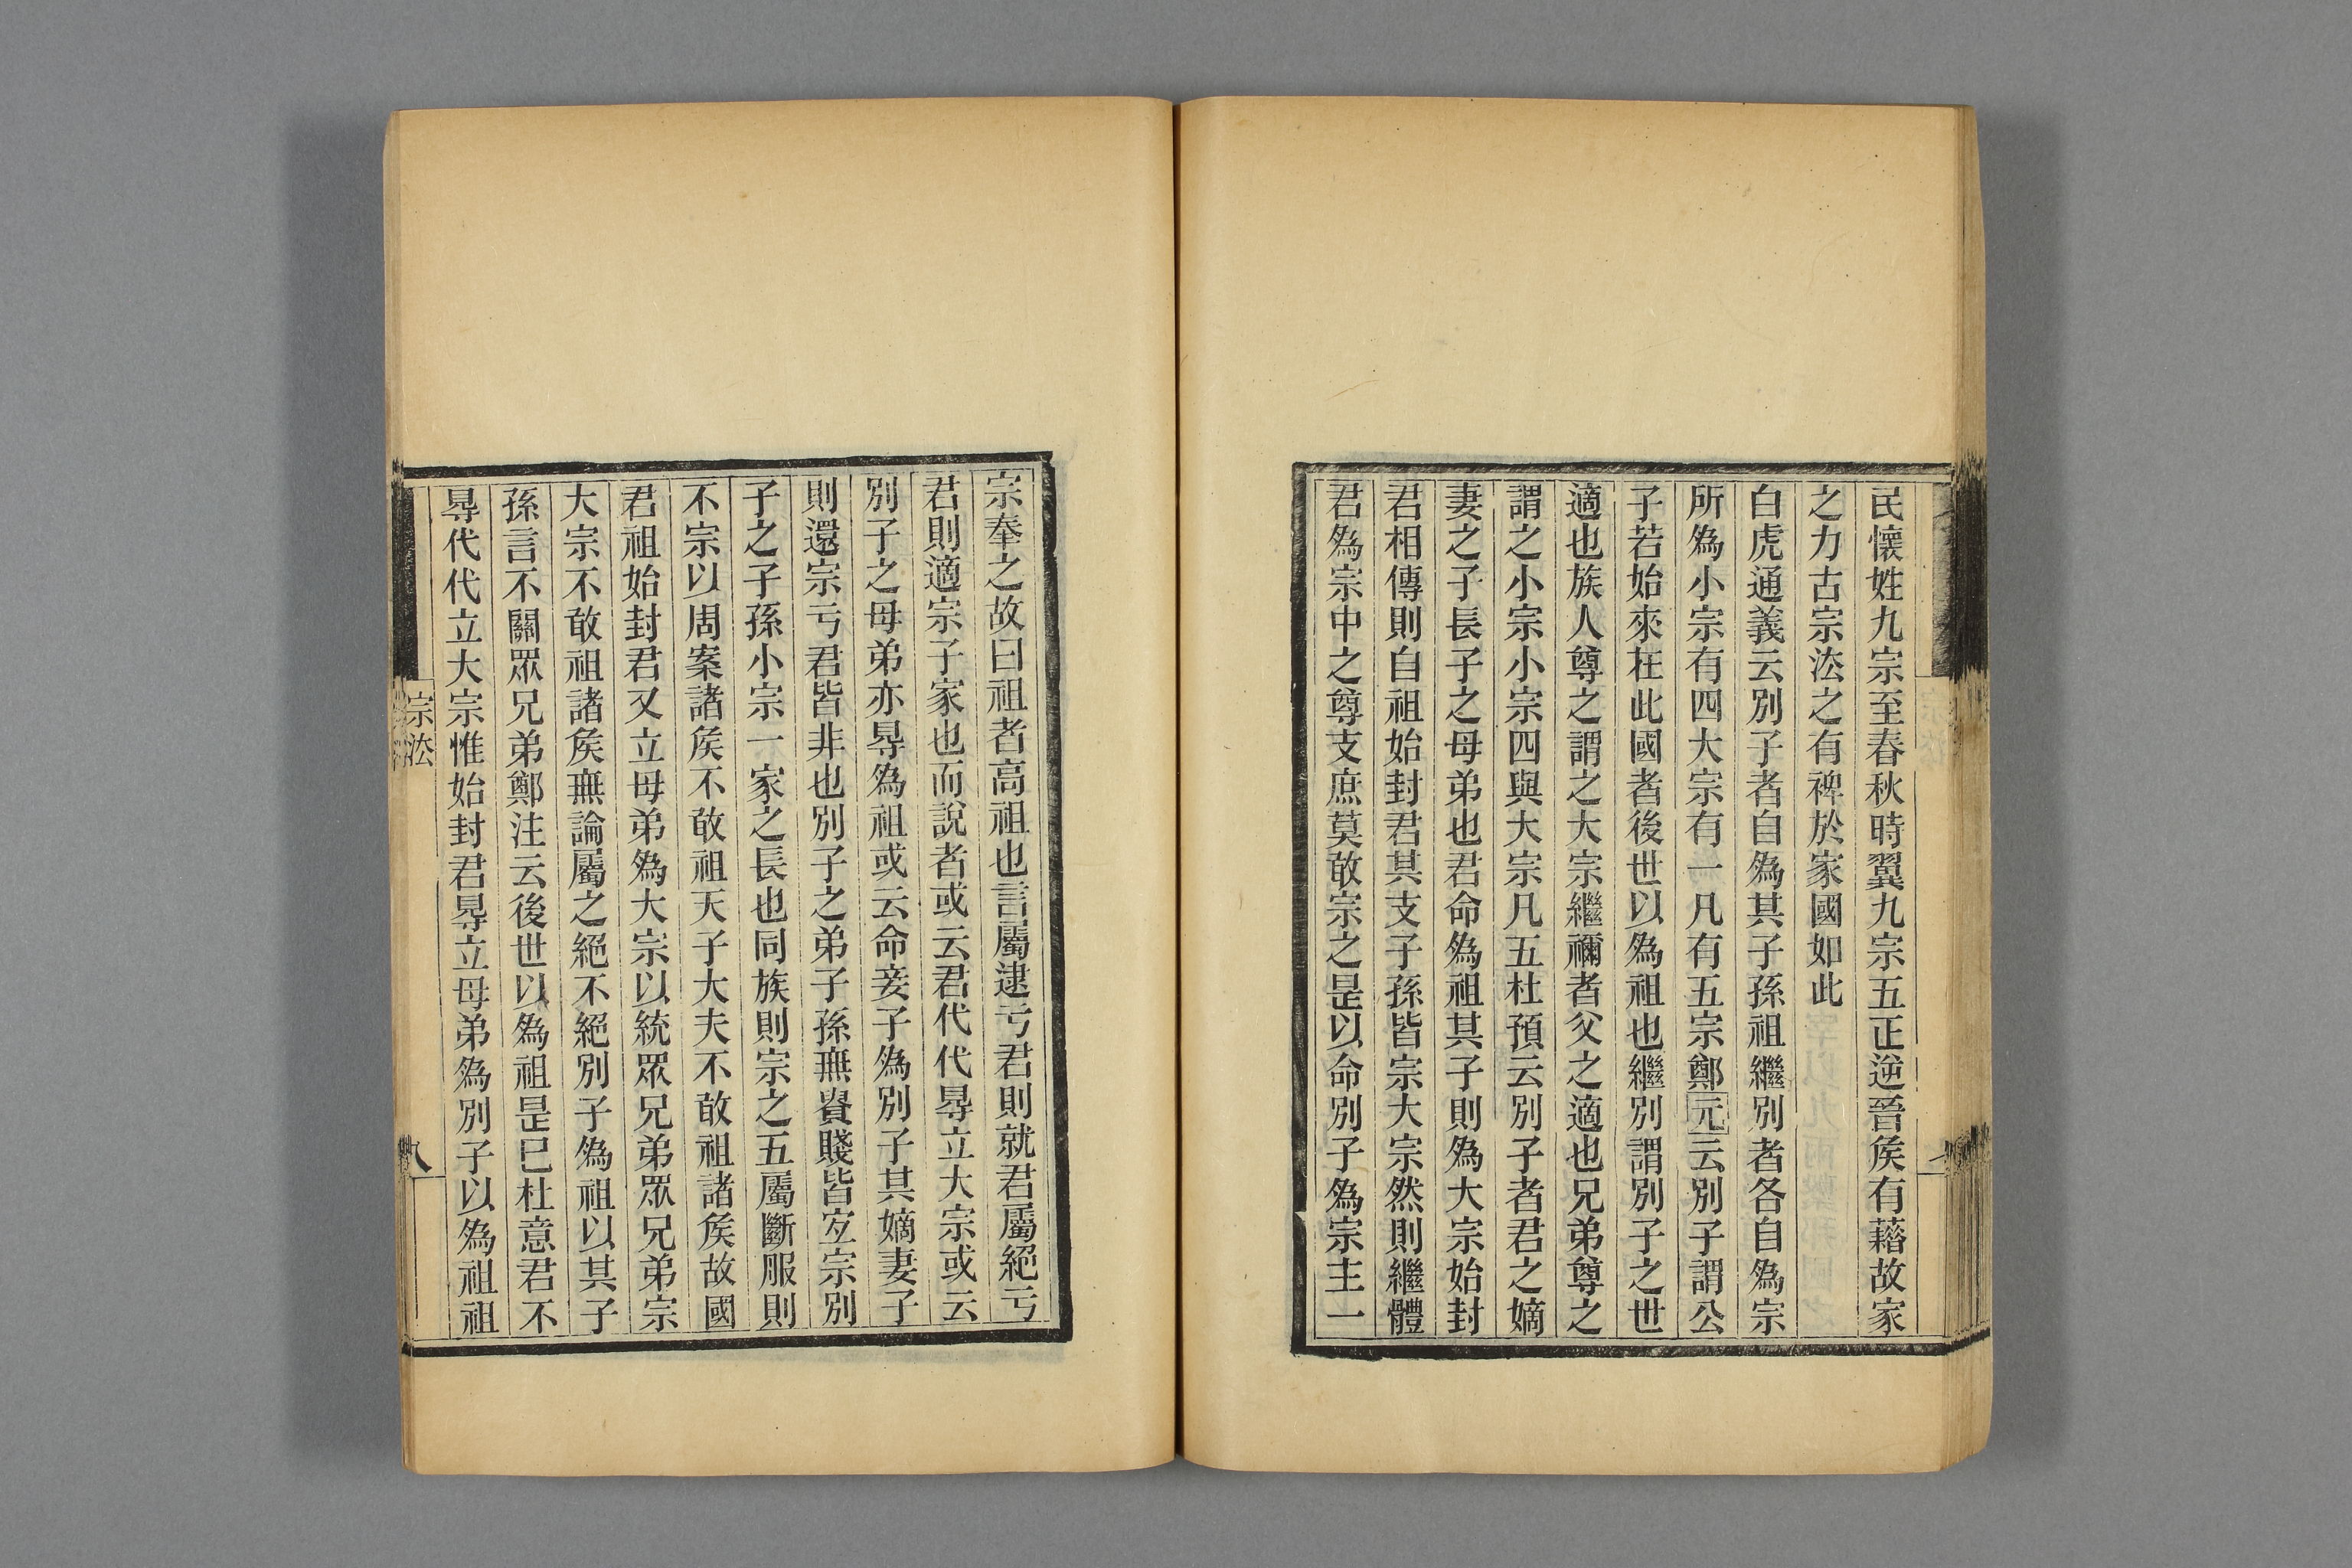 民懷姓九宗至春秋時翼九宗五正逆晉矦有藉故家
之力古宗㳒之有裨於家國如此
白虎通義云別子者自為其子孫祖繼別者各自為宗
所為小宗有四大宗有一凡有五宗鄭元云別子謂公
子若始來在此國者後世以為祖也繼別謂別子之世
適也族人尊之謂之大宗繼禰者父之適也兄弟尊之
謂之小宗小宗四與大宗凡五杜預云別子者君之嫡
妻之子長子之母弟也君命為祖其子則為大宗始封
君相傳則自祖始封君其支子孫皆宗大宗然則繼體
君為宗中之尊支庶莫敢宗之是以命別子為宗主一
宗奉之故曰祖者高祖也言屬逮亏君則就君屬絕亏
君則適宗子家也而說者或云君代代㝵立大宗或云
別子之母弟亦㝵為祖或云命妾子為別子其嫡妻子
則還宗亏君皆非也別子之弟子孫無貴賤皆宜宗別
子之子孫小宗一家之長也同族則宗之五屬斷服則
不宗以周案諸矦不敢祖天子大夫不敢祖諸矦故國
君祖始封君又立母弟為大宗以統眾兄弟眾兄弟宗
大宗不敢祖諸矦無論屬之絕不絕別子為祖以其子
孫言不關眾兄弟鄭注云後世以為祖是已杜意君不
㝵代代立大宗惟始封君㝵立母弟為別子以為祖祖
宗㳒
八